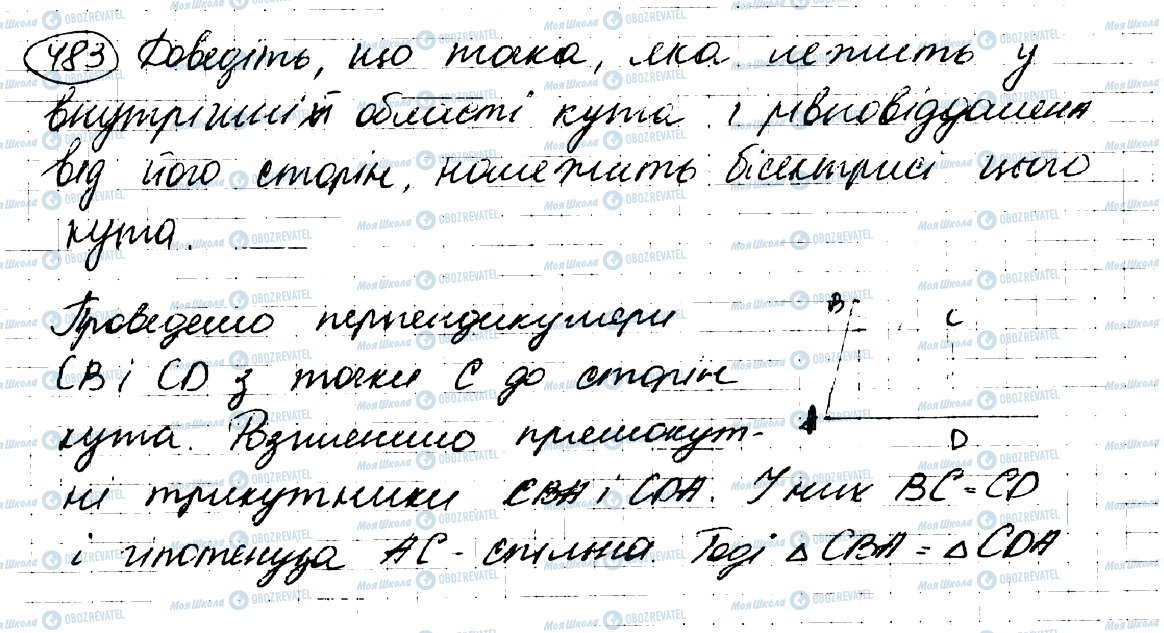 483 Доведіть, що точка, яка лежить у
внутрішній області кута і рівновіддалена
від його сторін, належить бісектрисі цього
кута.
Проведемо перпендикуляри
CB і CD з точки C до сторін
кута. Розглянемо прямокут-
ні трикутники CBA і CDA. У них BC = CD
і гіпотенуза AC - спільна. Тоді △CBA = △CDA
B
C
A
D